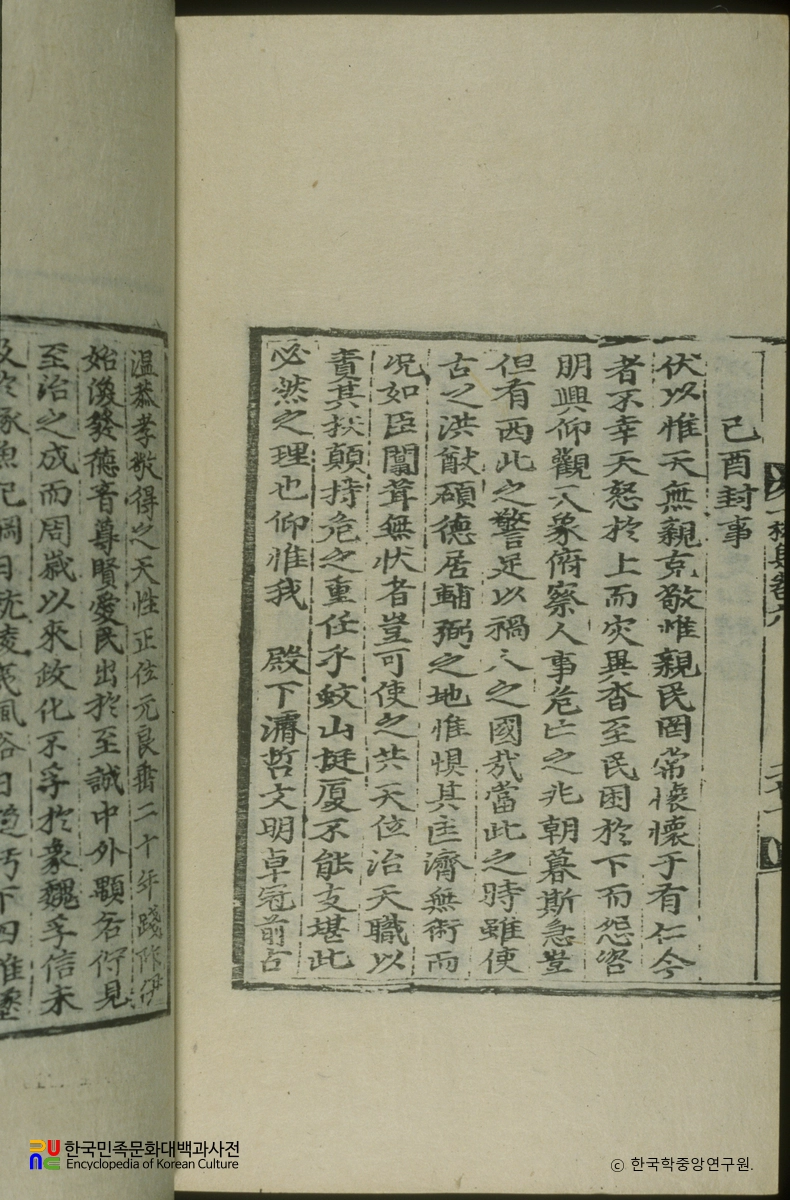 己酉封事
伏以惟天無親克敬惟親民罔常懷懷于有仁今
者不幸天怒於上而灾異沓至民困於下而怨咨
朋興仰觀乆象俯察人事危亡之兆朝暮斯急豈
但有西此之警足以禍人之國㢤當此之時雖使
古之洪猷碩德居輔弼之地惟惧其匡濟無術而
况如臣闒茸無状者豈可使之共天位治天職以
責其扶顛持危之重任乎蚊山挺厦不能支堪此
必然之理也仰惟我 殿下濬哲文明卓冠前古
温恭孝敬得之天性正位元良垂二十年踐阼伊
始渙發德音尊賢愛民出於至誠中外顒若佇見
至治之成而周歳以來政化不孚於豪魏孚信未
한국민족문화대백과사전
Encyclopedia of Korean Culture
© 한국학중앙연구원.